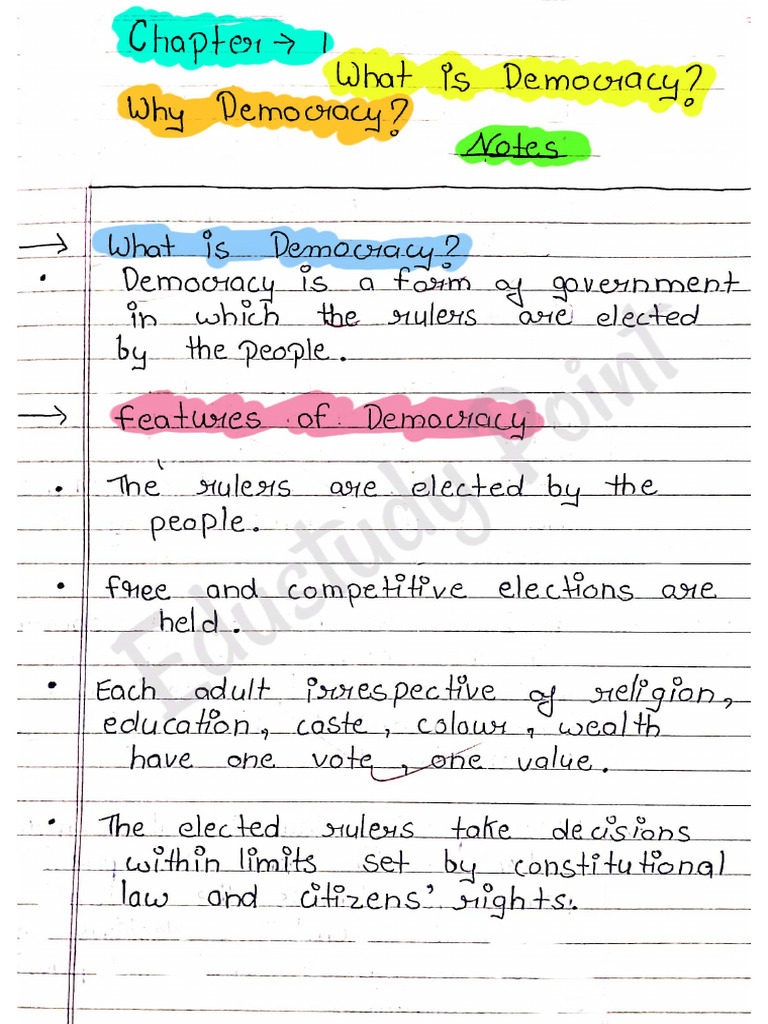 Chapter → 1
What is Democracy?
Why Democracy?
Notes
→ What is Democracy?
• Democracy is a form of government
in which the rulers are elected
by the people.
→ Features of Democracy
• The rulers are elected by the
people.
• Free and competitive elections are
held.
• Each adult irrespective of religion,
education, caste, colour, wealth
have one vote, one value.
• The elected rulers take decisions
within limits set by constitutional
law and citizens' rights.
Edustudy Point